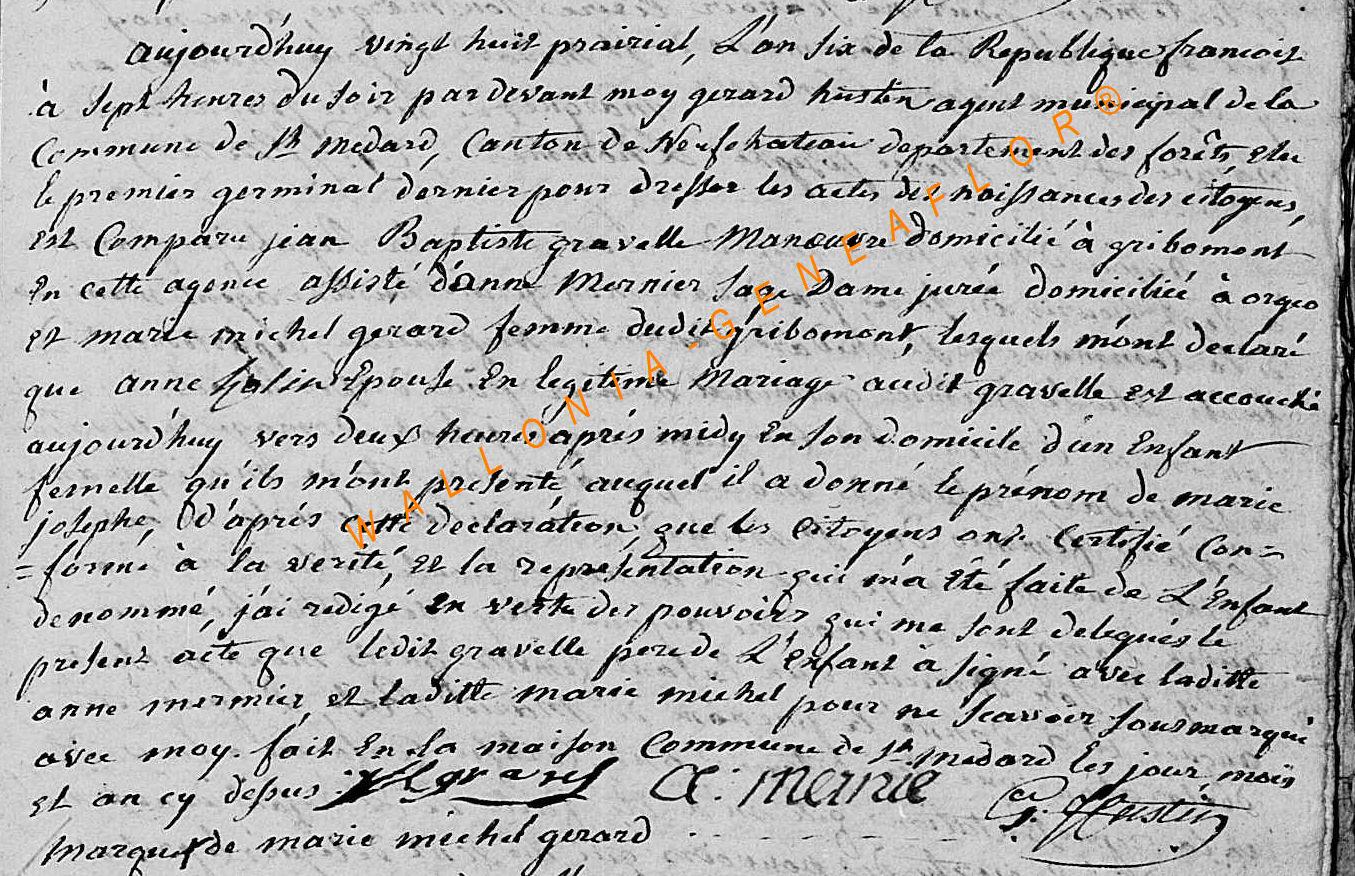 aujourd'huy vingt huit prairial, L'an six de la Republique francoise
à sept heures du soir pardevant moy gerard hustin agent municipal de la
Commune de St medard, Canton de Neufchateau departement des forêts, elu
le premier germinal dernier pour dresser les actes des naissances des citoyens,
est Comparu jean Baptiste gravelle Manœuvre domicilié à gribomont
En cette agence assisté d'anne Mernier sage Dame jurée domiciliée à orgeo
et marie michel gerard femme dudit gribomont, lesquels m'ont declaré
que anne Epouse En legitime Mariage audit gravelle est accouché
aujourd'huy vers deux heures après midy En son domicile d'un Enfant
femelle qu'ils m'ont presenté auquel il a donné le prénom de marie
josephe, d'après cette declaration, que les citoyens ont certifié Con=
=forme à la verité, et la représentation qui m'a été faite de L'Enfant
denommé, j'ai redigé en vertu des pouvoirs qui me sont delegués le
present acte que ledit gravelle pere de L'enfant a signé avec laditte
anne mernier, et laditte marie michel pour ne scavoir sousmarqué
avec moy. fait En la maison Commune de St. medard les jour, mois
et an cy dessus.
A: mernie G. Hustin
marque de marie michel gerard
WALLONIA-GENEAFLOR®